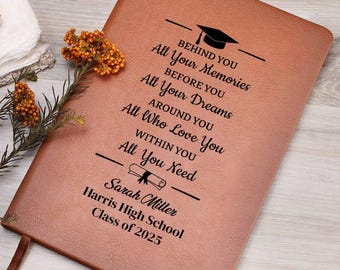 BEHIND YOU
All Your Memories
BEFORE YOU
All Your Dreams
AROUND YOU
All Who Love You
WITHIN YOU
All You Need
Sarah Miller
Harris High School
Class of 2025